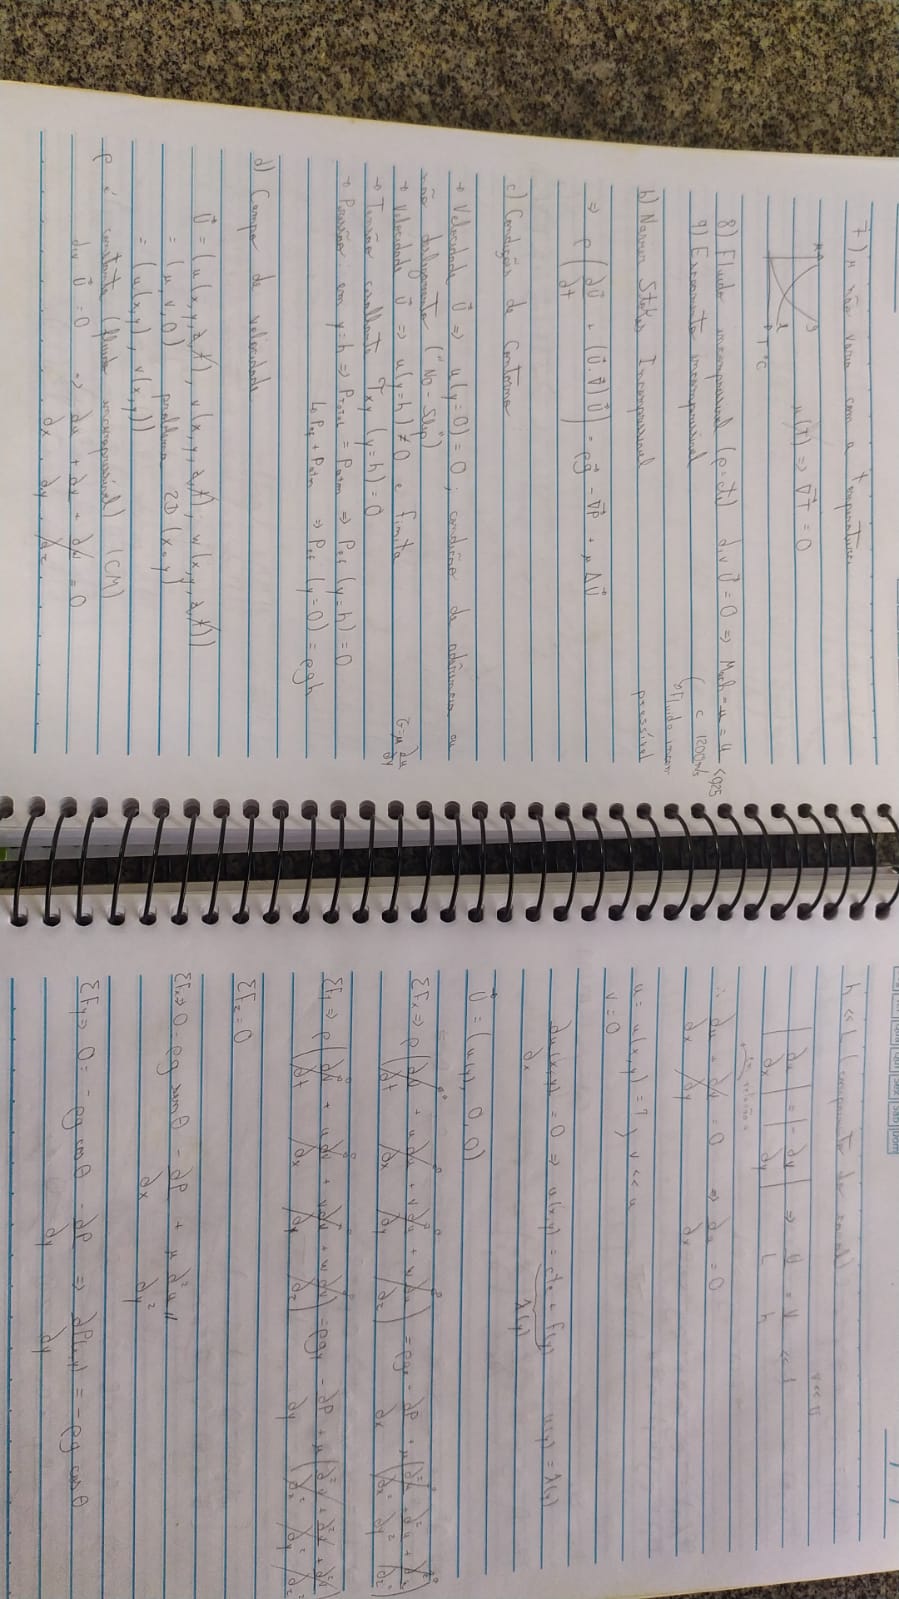 7) μ não varia com a temperatura
μ(T) => ∇T = 0
T°C
8) Fluido incompressível (ρ=cte) div U⃗ = 0 => Mach = u/c = 4/1200m/s < 0,25
9) Escoamento incompressível
↳ Fluido incom
pressível
b) Navier Stokes Incompressível
=> ρ(∂U⃗/∂t + (U⃗.∇⃗)U⃗) = ρg⃗ - ∇⃗P + μ ΔU⃗
c) Condições de Contorno
→ Velocidade U⃗ => u(y=0) = 0; condição de aderência ou
não deslizamento ("No-Slip")
→ Velocidade U⃗ => u(y=h) ≠ 0 e finita
→ Tensão cisalhante τxy (y=h) = 0
τ=μ ∂u/∂y
→ Pressão em y=h => Ptotal = Patm => Pef (y=h) = 0
↳ Pef + Patm => Pef (y=0) = ρgh
d) Campo de velocidade
U⃗ = (u(x,y,z,t), v(x,y,z,t), w(x,y,z,t))
= (u, v, 0) problema 2D (x,y)
= (u(x,y), v(x,y))
ρ é constante (fluido incompressível) (CM)
div U⃗ = 0 => ∂u/∂x + ∂v/∂y + ∂w/∂z = 0
h << L (comprimento do canal)
|∂u/∂x| = |-∂v/∂y| => U/L = V/h << 1
v << u
∴ ∂u/∂x = ∂v/∂y = 0 => ∂u/∂x = 0
u = u(x,y) = ? } v << u
v = 0
∂u(x,y)/∂x = 0 => u(x,y) = cte = f(y) u(y) = λ(y)
λ(y)
U⃗ = (u(y), 0, 0)
ΣFx => ρ(∂u/∂t + u∂u/∂x + v∂u/∂y + w∂u/∂z) = ρgx - ∂P/∂x + μ(∂²u/∂x² + ∂²u/∂y² + ∂²u/∂z²)
ΣFy => ρ(∂v/∂t + u∂v/∂x + v∂v/∂y + w∂v/∂z) = ρgy - ∂P/∂y + μ(∂²v/∂x² + ∂²v/∂y² + ∂²v/∂z²)
ΣFz = 0
ΣFx => 0 = ρg senθ - ∂P/∂x + μ ∂²u/∂y² //
ΣFy => 0 = -ρg cosθ - ∂P/∂y => ∂P(x,y)/∂y = -ρg cosθ